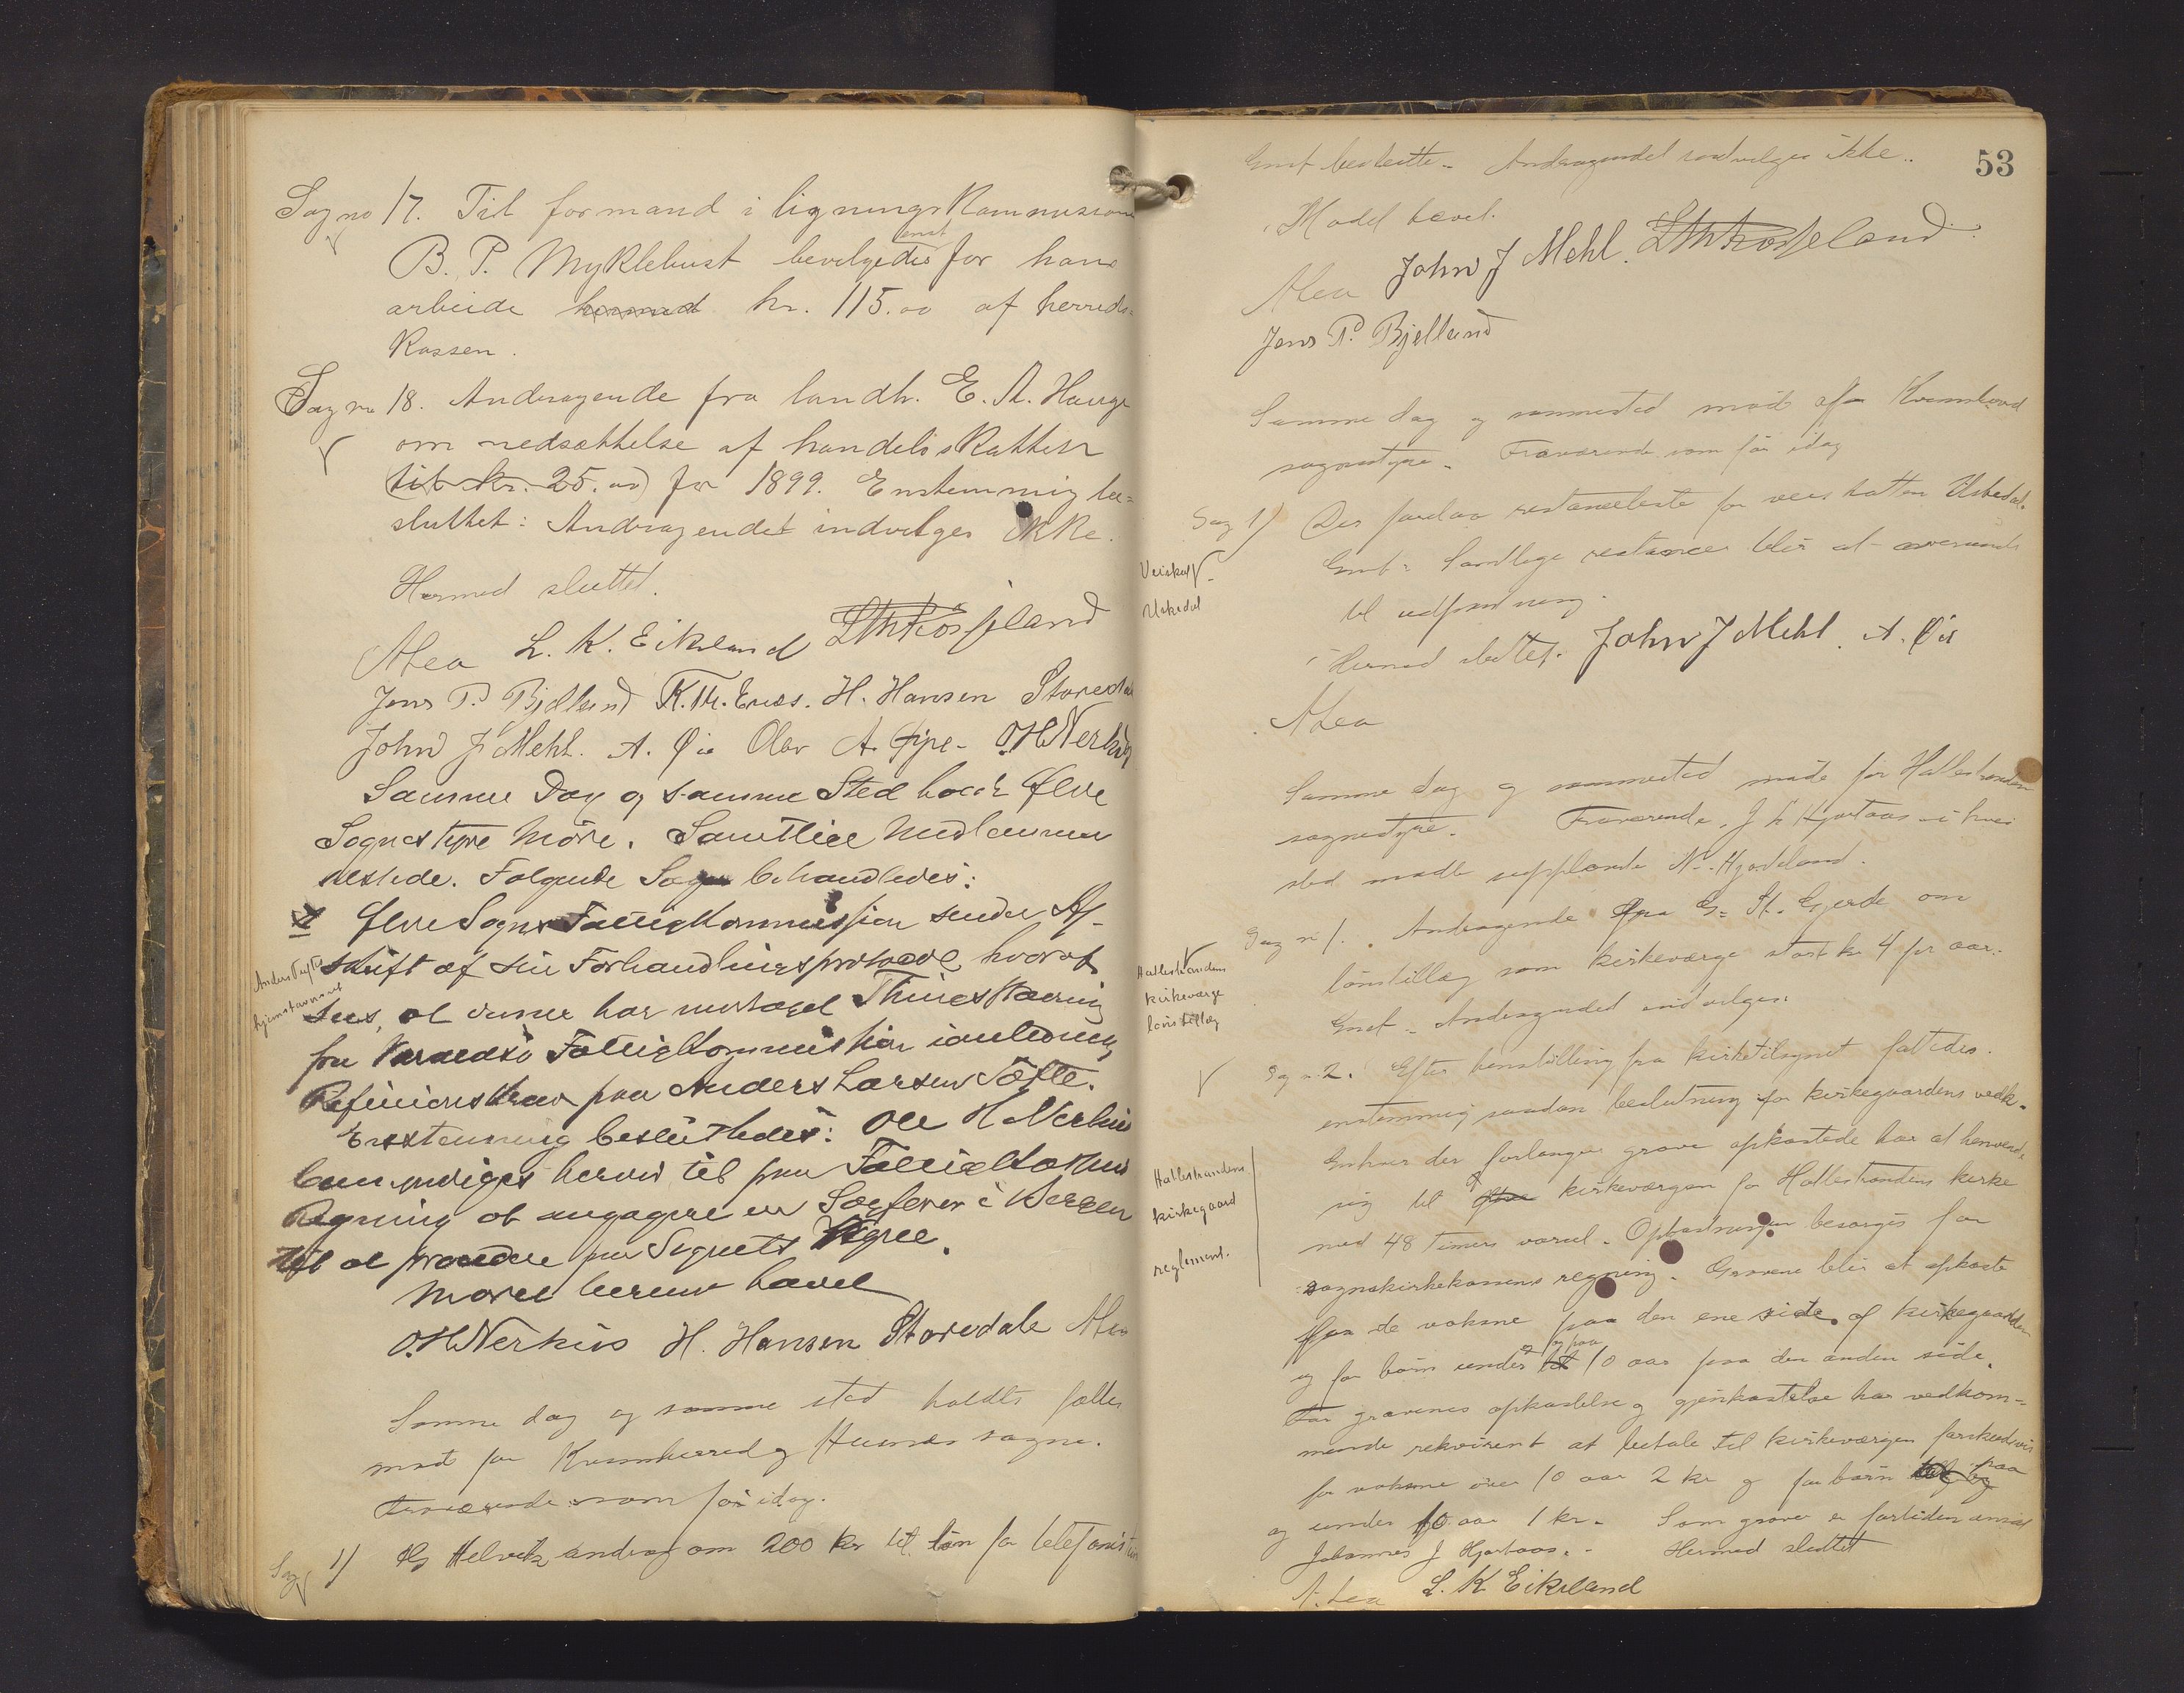 Sag no 17. Til formand i ligningskommissionen
B. P. Myklebust bevilgedes enst for hans
arbeide kr. 115.00 af herreds-
kassen.
Sag no 18. Andragende fra landh. E. A. Hauge
om nedsættelse af handelsskatten
til kr. 25.00 for 1899. Enstemmig be-
sluttet: Andragendet indvilges ikke.
Hermed sluttet.
A Lea L. K. Eikeland
Jens P. Bjelland K. Th. Enæs. H. Hansen Storedal
John J Mehl. A. Øie Olav A. Gjpe. O.H Nerhus
Samme Dag og samme Sted holdt Ølve
Sognestyre Møde. Samtlige Medlemmer
tilstede. Følgende Sager behandledes:
1 Ølve Sogns Fattigkommission sender Af-
Anders Tøfte
hjemstavnsret
skrift af sin Forhandlingsprotocol hvoraf
sees, at denne har modtaget Thingsstævning
fra Varaldsø Fattigkommission ianledning
Refusionskrav paa Anders Larsen Tøfte.
Enstemmig besluttedes: Ole H. Nerhus
bemyndiges herved til paa Fattigkassens
Regning at angagere en Sagfører i Bergen
til at procedere paa Sognets Vegne.
Mødet hermed hævet
O.H Nerhus H. Hansen Storedale A Lea
Samme dag og samme sted holdtes fælles
mød for Kvinnherred og Husnes sogne.
Fraværende som før idag.
Sag 1) andrag om 200 kr til løn for telefonist
53
Enst besluttet. Andragendet indvilges ikke.
Mødet hævet.
A Lea John J Mehl.
Jens P. Bjelland
Samme dag og sammested mød af Kvinnherred
sognestyre. Fraværende som før idag
Sag 1) Der forelaa restanceliste for veiskatten Uskedal.
Veiskat
Uskedal
Enst: Samtlige restancer blir at oversende
til udpantning.
Hermed sluttet. John J Mehl. A. Øie
A Lea
Samme dag og sammested møde for Hattestrandens
sognestyre. Fraværende J L Hjortaas i hvis
sted mødte supplanten N. Hjortland.
Sag n 1. Andragende fra G. St. Gjerde om
Hattestrandens
kirkeværge
lønstillæg
lønstillæg som kirkeværge stort kr 4 pr aar.
Enst. Andragendet indvilges.
Sag n. 2. Efter henstilling fra kirketilsynet fattedes
enstemmig saadan beslutning for kirkegaardens vedk.
Hattestrandens
kirkegaard
reglement.
Enhver der forlanger grave opkastede har at henvende
sig til kirkeværgen for Hattestrandens kirke
med 48 timers varsel. Opkastningen besørges for
sognskirkekassens regning. Gravene blir at opkaste
for de voksne paa den ene side af kirkegaarden
og for børn under og paa 10 aar paa den anden side.
For gravenes opkastelse og gjenkastelse har vedkom-
mende rekvirent at betale til kirkeværgen forskudsvis
for voksne over 10 aar 2 kr og for børn paa
og under 10 aar 1 kr. Som graver er fortiden ansat
Johannes J Hjortaas. - Hermed sluttet
A. Lea L. K Eikeland